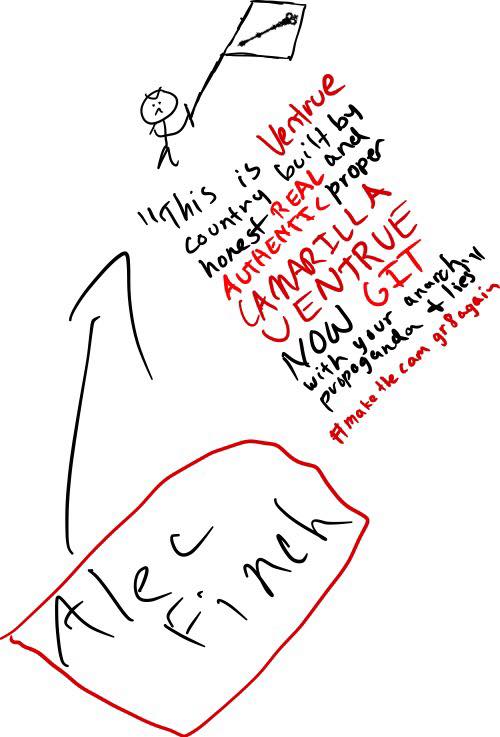 "This is Ventrue
country built by
honest REAL and
AUTHENTIC proper
CAMARILLA
VENTRUE
NOW GIT
with your anarch
propoganda + lies"
#makethecamgr8again
Alec
Finch